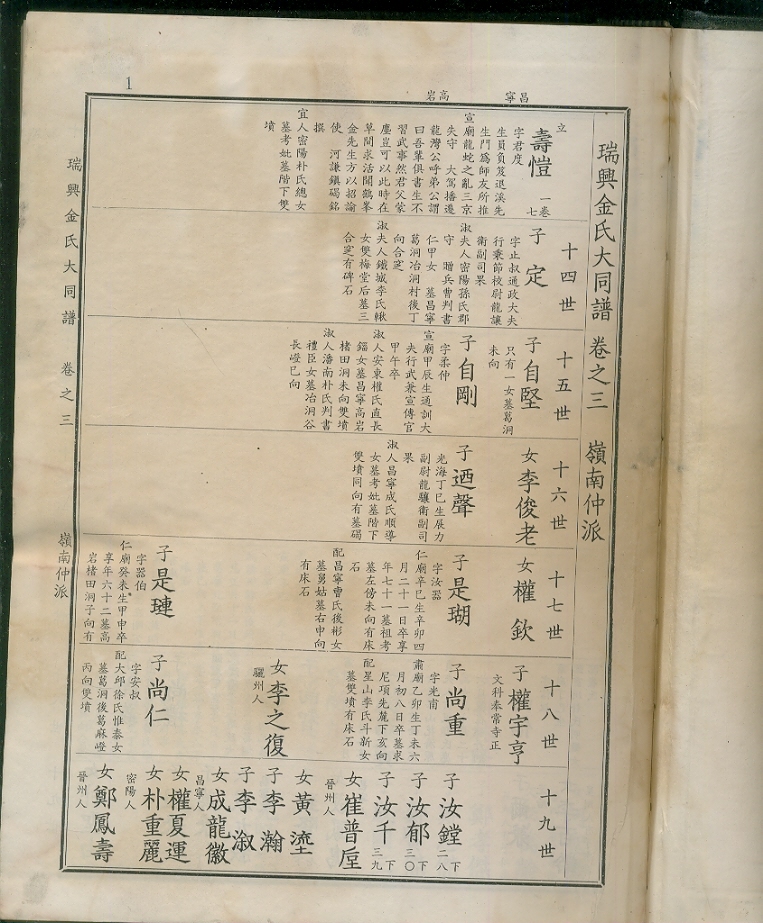 1
昌寧
高岩
瑞興金氏大同譜 卷之三 嶺南仲派
十四世
十五世
十六世
十七世
十八世
十九世
立
壽愷
一卷
七
字君度
生員負笈退溪先
生門爲師友所推
宣廟龍蛇之亂三京
失守 大駕播遷
龍灣公呼弟公謂
曰吾輩俱書生不
習武事然君父蒙
塵豈可以此時在
草間求活聞鶴峯
金先生方以招諭
使 河謙鎭碣銘
撰
宜人密陽朴氏總女
墓考妣墓階下雙
墳
子 定
字止叔通政大夫
行秉節校尉龍驤
衛副司果
淑夫人密陽孫氏郡
守 贈兵曹判書
仁甲女 墓昌寧
葛洞冶洞村後丁
向合窆
淑夫人鐵城李氏楸
女雙梅堂后墓三
合窆有碑石
子自堅
只有一女墓葛洞
未向
子自剛
字柔仲
宣廟甲辰生通訓大
夫行武兼宣傳官
甲午卒
淑人安東權氏直長
錙女墓昌寧高岩
楮田洞未向雙墳
淑人潘南朴氏判書
禮臣女墓冶洞谷
長嶝巳向
女李俊老
子迺聲
光海丁巳生展力
副尉龍驤衛副司
果
淑人昌寧成氏順導
女墓考妣墓階下
雙墳同向有墓碣
女權 欽
子是瑚
字汝器
仁廟辛巳生辛卯四
月二十一日卒享
年七十一墓祖考
墓左傍未向有床
石
配昌寧曺氏後彬女
墓舅姑墓右申向
有床石
子是璉
字器伯
仁廟癸未生甲申卒
享年六十二墓高
岩楮田洞子向有
子權宇亨
文科奉常寺正
子尚重
字光甫
肅廟乙卯生丁未六
月初八日卒墓求
尼項先麓下亥向
配星山李氏斗新女
墓雙墳有床石
女李之復
驪州人
子尚仁
字安叔
配大邱徐氏惟泰女
墓葛洞後葛麻嶝
丙向雙墳
子汝鏜
下
二八
子汝郁
下
三〇
子汝千
下
三九
女崔普垕
晉州人
女黃 𡋯
子李 瀚
子李 淑
女成龍徽
昌寧人
女權夏運
女朴重麗
密陽人
女鄭鳳壽
晉州人
瑞興金氏大同譜 卷之三 嶺南仲派